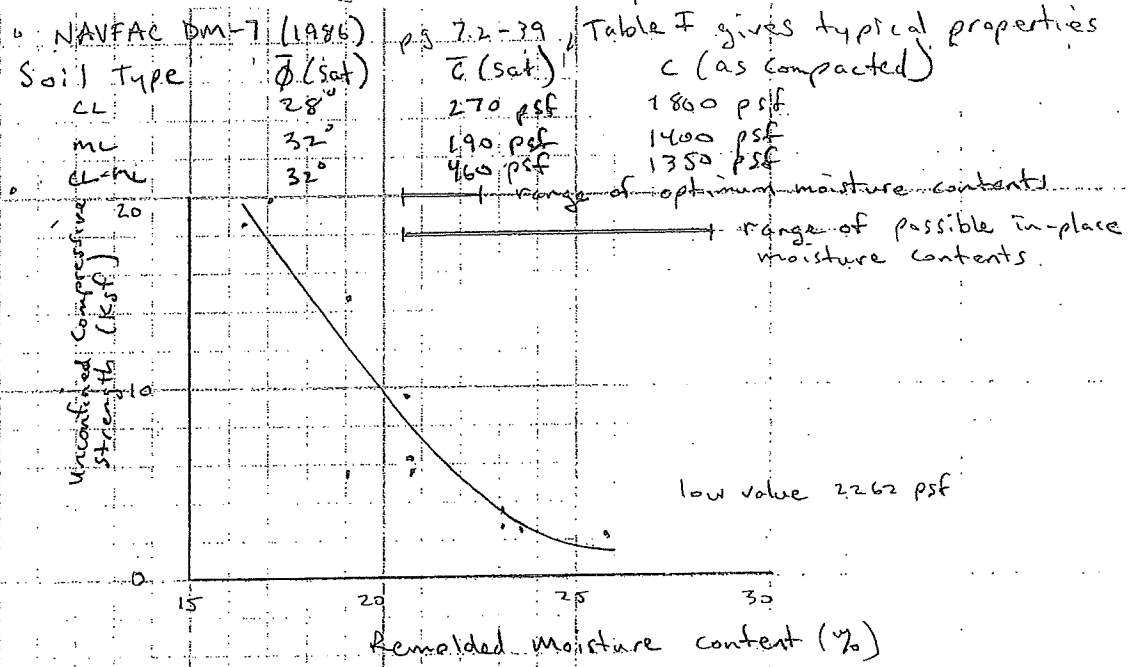 NAVFAC DM-7 (1986) pg 7.2-39, Table I gives typical properties
Soil Type φ̄ (sat) c̄ (sat) c (as compacted)
CL 28° 270 psf 1800 psf
ML 32° 190 psf 1400 psf
CL-ML 32° 460 psf 1350 psf
range of optimum moisture contents
range of possible in-place
moisture contents.
Unconfined Compressive
Strength (Ksf)
20
10
0
low value 2262 psf
15 20 25 30
Remolded Moisture Content (%)